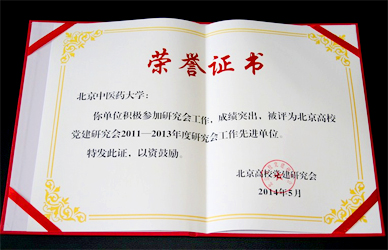 荣誉证书
北京中医药大学：
你单位积极参加研究会工作，成绩突出，被评为北京高校
党建研究会2011—2013年度研究会工作先进单位。
特发此证，以资鼓励。
北京高校党建研究会
2014年5月